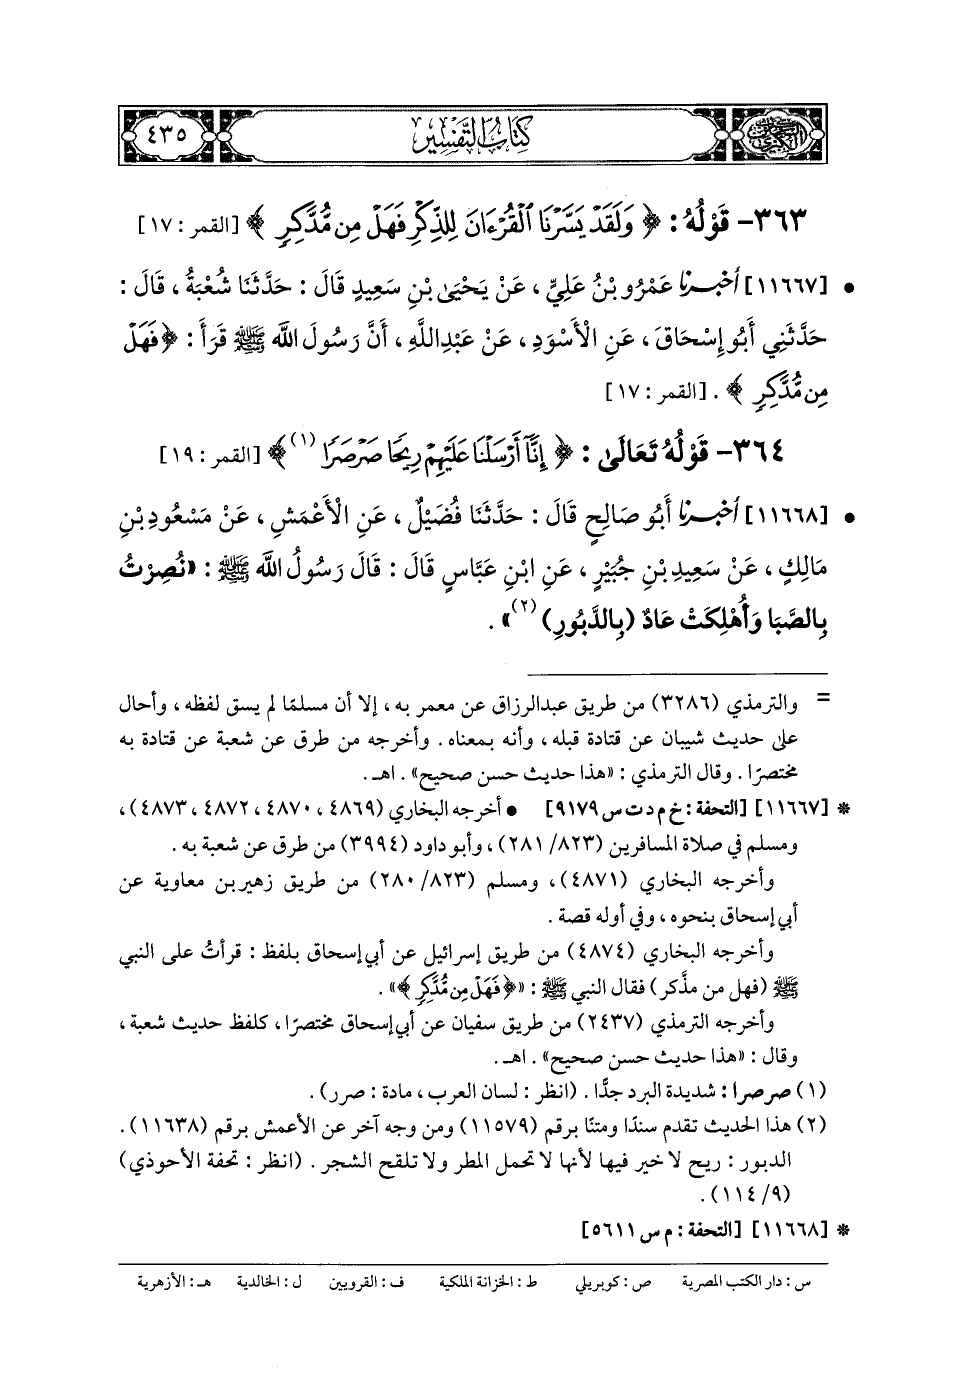 السنن الكبرى
كتاب التفسير
٤٣٥
٣٦٣- قَوْلُهُ : ﴿ وَلَقَدْ يَسَّرْنَا الْقُرْءَانَ لِلذِّكْرِ فَهَلْ مِن مُّدَّكِرٍ ﴾ [القمر : ١٧]
• [١١٦٦٧] أخبرنا عَمْرُو بْنُ عَلِيٍّ ، عَنْ يَحْيَى بْنِ سَعِيدٍ قَالَ : حَدَّثَنَا شُعْبَةُ ، قَالَ :
حَدَّثَنِي أَبُو إِسْحَاقَ ، عَنِ الْأَسْوَدِ ، عَنْ عَبْدِاللَّهِ ، أَنَّ رَسُولَ الله ﷺ قَرَأَ : ﴿ فَهَلْ
مِن مُّدَّكِرٍ ﴾ . [القمر : ١٧]
٣٦٤- قَوْلُهُ تَعَالَى : ﴿ إِنَّا أَرْسَلْنَا عَلَيْهِمْ رِيحًا صَرْصَرًا (١) ﴾ [القمر : ١٩]
• [١١٦٦٨] أخبرنا أَبُو صَالِحٍ قَالَ : حَدَّثَنَا فُضَيْلٌ ، عَنِ الْأَعْمَشِ ، عَنْ مَسْعُودِ بْنِ
مَالِكٍ ، عَنْ سَعِيدِ بْنِ جُبَيْرٍ ، عَنِ ابْنِ عَبَّاسٍ قَالَ : قَالَ رَسُولُ الله ﷺ : «نُصِرْتُ
بِالصَّبَا وَأُهْلِكَتْ عَادٌ (بِالدَّبُورِ) (٢)» .
= والترمذي (٣٢٨٦) من طريق عبدالرزاق عن معمر به ، إلا أن مسلمًا لم يسق لفظه ، وأحال
على حديث شيبان عن قتادة قبله ، وأنه بمعناه . وأخرجه من طرق عن شعبة عن قتادة به
مختصرًا . وقال الترمذي : «هذا حديث حسن صحيح» . اهـ .
* [١١٦٦٧] [التحفة : خ م د ت س ٩١٧٩] • أخرجه البخاري (٤٨٦٩ ، ٤٨٧٠ ، ٤٨٧٢ ، ٤٨٧٣) ،
ومسلم في صلاة المسافرين (٢٨١/٨٢٣) ، وأبو داود (٣٩٩٤) من طرق عن شعبة به .
وأخرجه البخاري (٤٨٧١) ، ومسلم (٢٨٠/٨٢٣) من طريق زهير بن معاوية عن
أبي إسحاق بنحوه ، وفي أوله قصة .
وأخرجه البخاري (٤٨٧٤) من طريق إسرائيل عن أبي إسحاق بلفظ : قرأتُ على النبي
ﷺ (فهل من مذَّكر) فقال النبي ﷺ : «﴿ فَهَلْ مِن مُّدَّكِرٍ ﴾» .
وأخرجه الترمذي (٢٤٣٧) من طريق سفيان عن أبي إسحاق مختصرًا ، كلفظ حديث شعبة ،
وقال : «هذا حديث حسن صحيح» . اهـ .
(١) صرصرا : شديدة البرد جدًّا . (انظر : لسان العرب ، مادة : صرر) .
(٢) هذا الحديث تقدم سندًا ومتنًا برقم (١١٥٧٩) ومن وجه آخر عن الأعمش برقم (١١٦٣٨) .
الدبور : ريح لا خير فيها لأنها لا تحمل المطر ولا تلقح الشجر . (انظر : تحفة الأحوذي)
(١١٤/٩) .
* [١١٦٦٨] [التحفة : م س ٥٦١١]
س : دار الكتب المصرية ص : كوبريلي ط : الخزانة الملكية ف : القرويين ل : الخالدية هـ : الأزهرية